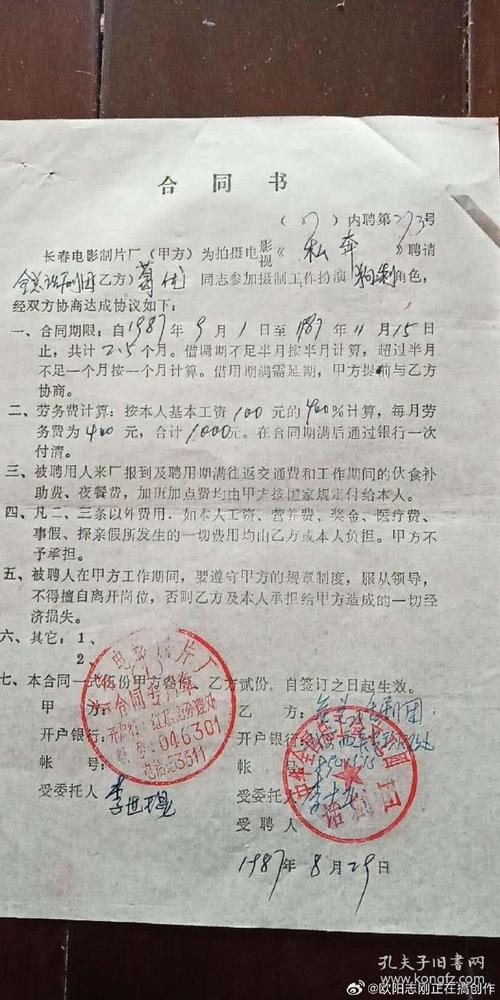 合同书
(87)内聘第273号
长春电影制片厂(甲方)为拍摄电影视《私奔》聘请
全总话剧团乙方)葛优同志参加摄制工作扮演狗剩角色,
经双方协商达成协议如下:
一、合同期限:自1987年9月1日至1987年11月15日
止,共计2.5个月。借调期不足半月按半月计算,超过半月
不足一个月按一个月计算。借用期满需延期,甲方提前与乙方
协商。
二、劳务费计算:按本人基本工资100元的400%计算,每月劳
务费为400元,合计1000元。在合同期满后通过银行一次
付清。
三、被聘用人来厂报到及聘用期满往返交通费和工作期间的伙食补
助费、夜餐费,加班加点费均由甲方按国家规定付给本人。
四、凡二、三条以外费用,如本人工资、营养费、奖金、医疗费、
事假、探亲假所发生的一切费用均由乙方或本人负担。甲方不
予承担。
五、被聘人在甲方工作期间,要遵守甲方的规章制度,服从领导,
不得擅自离开岗位,否则乙方及本人承担给甲方造成的一切经
济损失。
六、其它:1、
2、
七、本合同一式伍份甲方叁份,乙方贰份。自签订之日起生效。
甲方:
开户银行:
帐号:
受委托人
电影制片厂
合同专用章
开户行:红旗街办理处
帐号:046301
电话:53311
乙方:全总话剧团
开户银行:
帐号:
受委托人
受聘人
话剧团
1987年8月29日
孔夫子旧书网
kongfz.com
@欧阳志刚正在搞创作